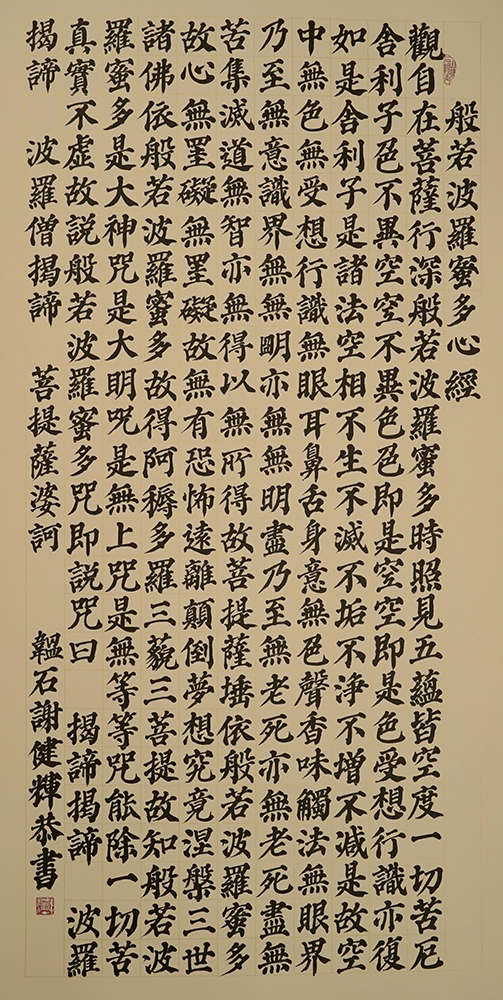 般若波羅蜜多心經
觀自在菩薩行深般若波羅蜜多時照見五蘊皆空度一切苦厄
舍利子色不異空空不異色色即是空空即是色受想行識亦復
如是舍利子是諸法空相不生不滅不垢不淨不增不減是故空
中無色無受想行識無眼耳鼻舌身意無色聲香味觸法無眼界
乃至無意識界無無明亦無無明盡乃至無老死亦無老死盡無
苦集滅道無智亦無得以無所得故菩提薩埵依般若波羅蜜多
故心無罣礙無罣礙故無有恐怖遠離顛倒夢想究竟涅槃三世
諸佛依般若波羅蜜多故得阿耨多羅三藐三菩提故知般若波
羅蜜多是大神咒是大明咒是無上咒是無等等咒能除一切苦
真實不虛故說般若波羅蜜多咒即說咒曰 揭諦揭諦 波羅
揭諦 波羅僧揭諦 菩提薩婆訶 韞石謝健輝恭書